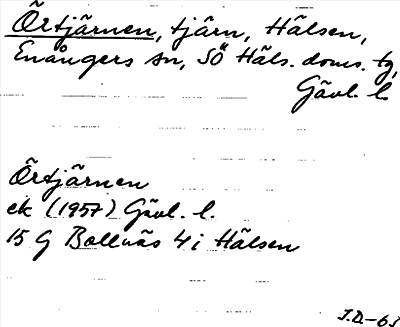 Örtjärnen, tjärn, Hälsen,
Enångers sn, SÖ Häls. doms. tg,
Gävl. l.
Örtjärnen
ek (1957) Gävl. l.
15 G Bollnäs 4 i Hälsen
J.D.-63